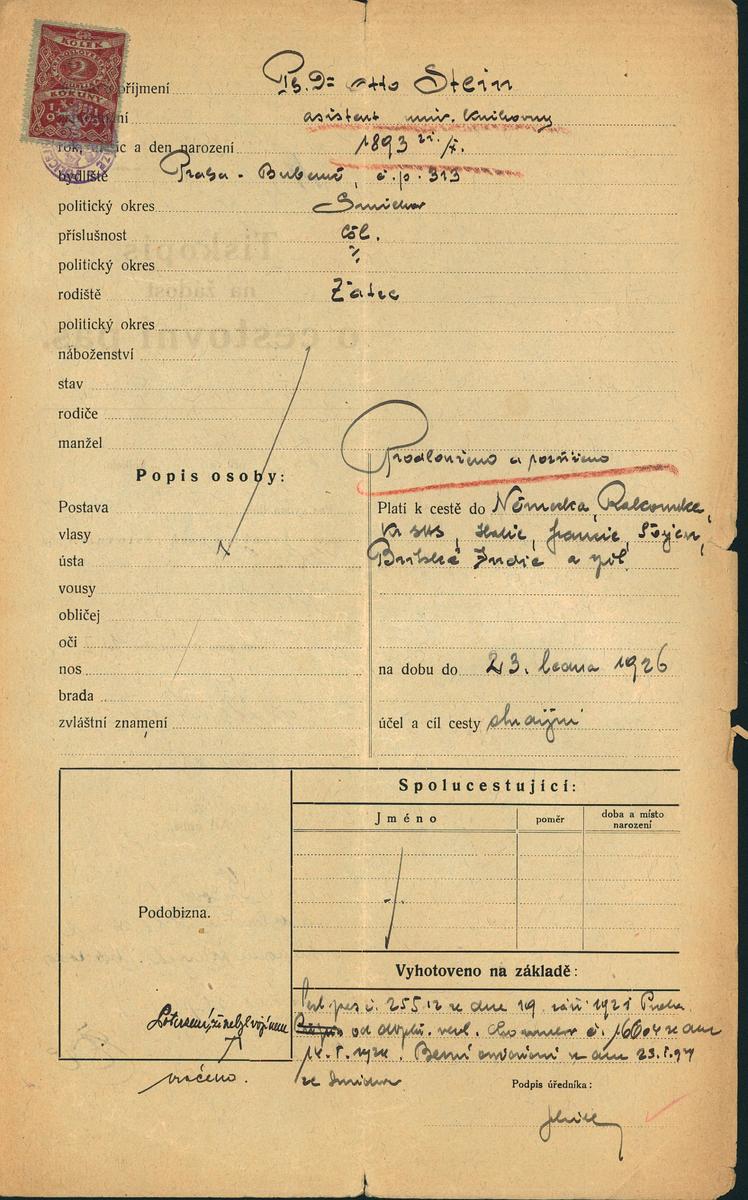 KOLEK
2
KORUNY
příjmení Ph. Dr Otto Stein
asistent univ. knihovny
rok, měsíc a den narození 1893
bydliště Praha - Bubeneč, č.p. 313
politický okres Smíchov
příslušnost čsl.
politický okres
rodiště Žatec
politický okres
náboženství
stav
rodiče
manžel
Prodlouženo a rozšířeno
Popis osoby:
Postava
vlasy
ústa
vousy
obličej
oči
nos
brada
zvláštní znamení
Platí k cestě do Německa, Rakouska,
SHS, Italie, Francie,
Britské Indie a zpět
na dobu do 23. ledna 1926
účel a cíl cesty studijní
Spolucestující:
Jméno poměr doba a místo narození
Podobizna.
Vyhotoveno na základě:
pas č. 25512 ze dne 19. září 1921 Praha.
od č. 16604 ze dne
14. 1. 1924. Berní ze dne 23. 1. 24
ze Smíchova
vráceno.
Podpis úředníka: